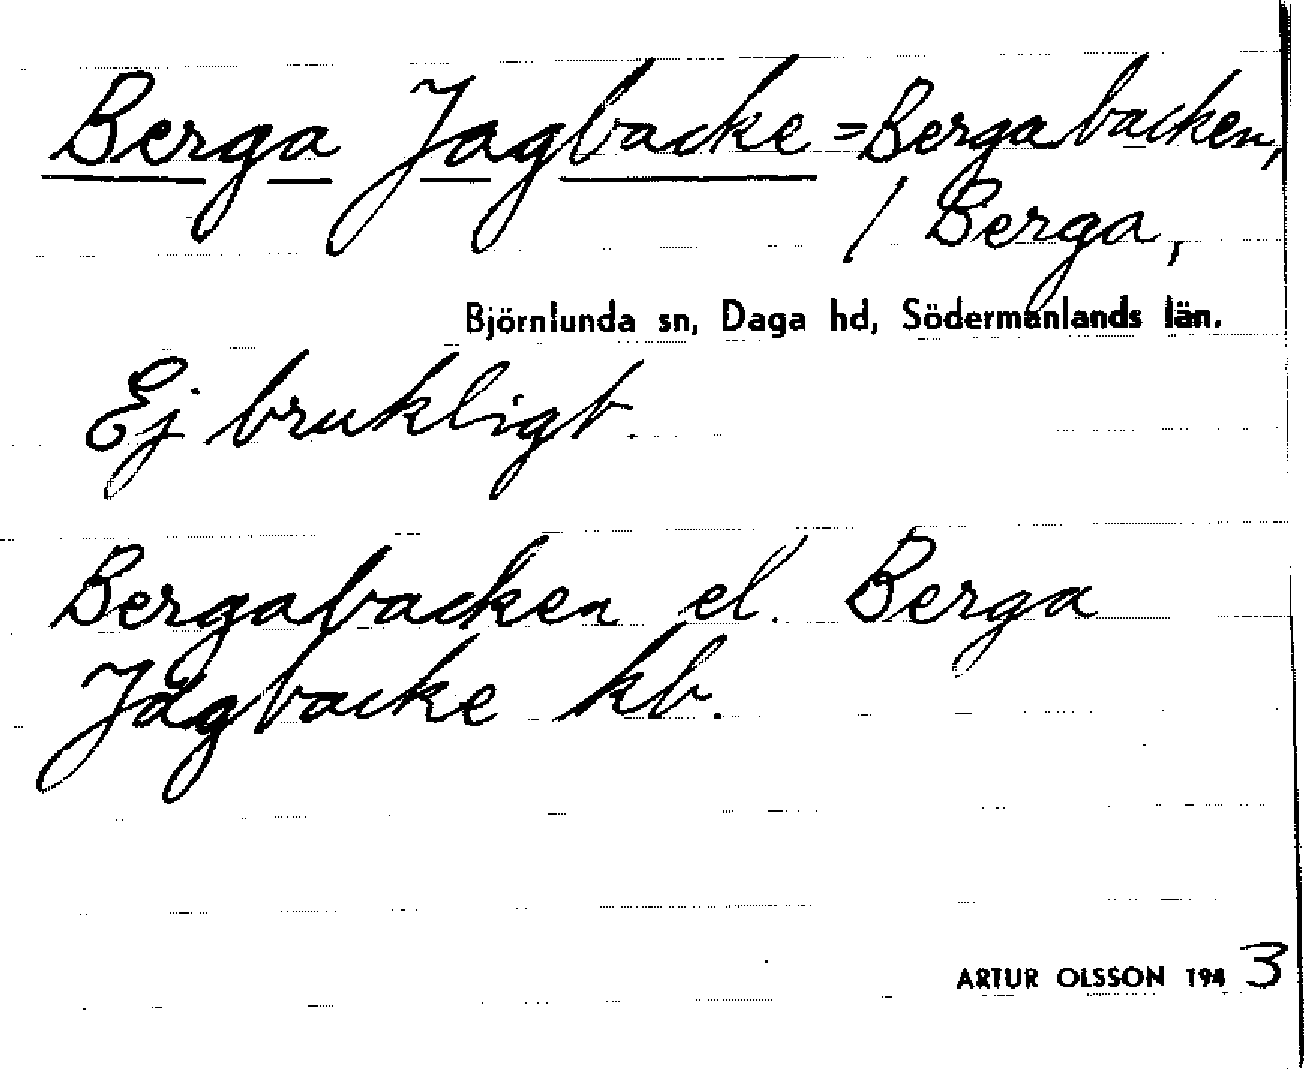 Berga Jagbacke = Bergabacken,
/ Berga,
Björnlunda sn, Daga hd, Södermanlands län.
Ej brukligt.
Bergabacken el. Berga
Jagbacke kb.
ARTUR OLSSON 1943